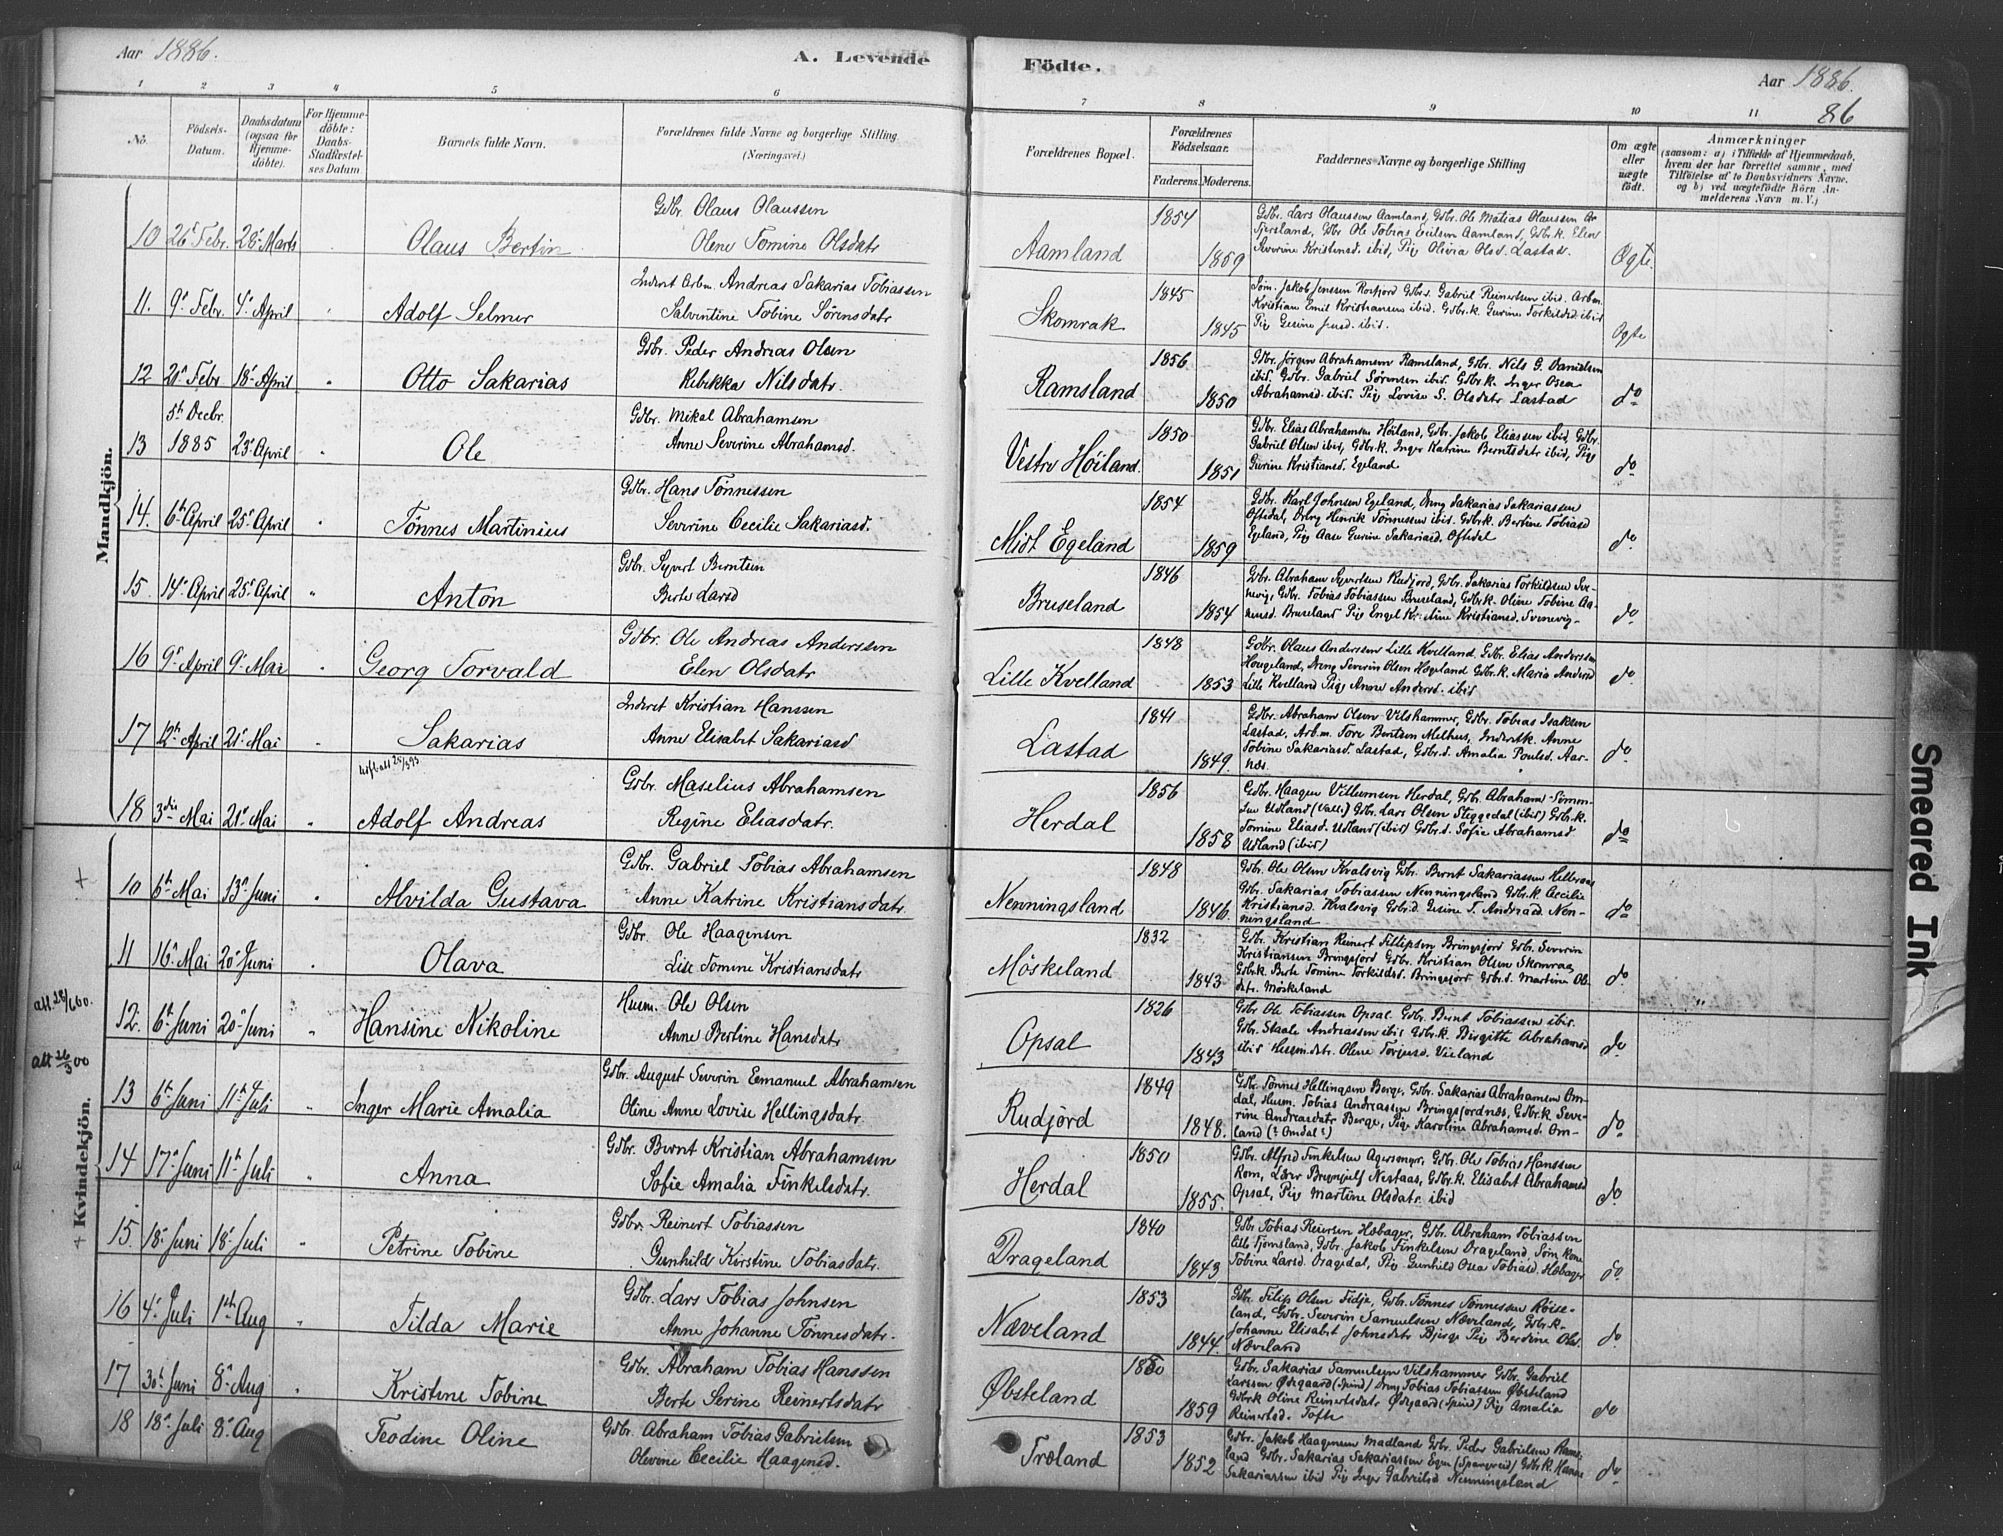 Aar 1886.
A. Levende
Födte.
Aar 1886.
86
1 2 3 4 5 6 7 8 9 10 11
No.
Födsels-Datum.
Daabsdatum (ogsaa for Hjemme-döbte).
For Hjemme-döbte: Daabs-Stadfæstel-ses Datum.
Barnets fulde Navn.
Forældrenes fulde Navne og borgerlige Stilling.
(Næringsvei.)
Forældrenes Bopæl.
Forældrenes Födselsaar.
Faderens. Moderens.
Faddernes Navne og borgerlige Stilling
Om ægte eller uægte födt.
Anmærkninger
(saasom: a) i Tilfælde af Hjemmedaab,
hvem der har forrettet samme, med
Tilföielse af to Daabsvidners Navne,
og b) ved uægtefödte Börn An-
melderens Navn m. V.)
Mandkjön.
10 26 Febr. 28 Marts Olaus Bertin
Gdbr. Olaus Olaussen
Olene Tomine Olsdatr
Aamland 1854 1859
Gdbr. Lars Olaussen Aamland, Gdbr. Ole Matias Olaussen
Gdbr. Ole Tobias Aamland, Gdbr.k. Elen
Severine Kristensd. ibid, Pig Olivia Olsd. Lastad.
Ægte.
11. 9 Febr. 4 April Adolf Selmer
Inderst Arbm. Andreas Sakarias Tobiassen
Salvintine Tobine Sörensdatr
Skomrak 1845 1845
Jakob Jenssen Rosfjord Gdbr. Gabriel Reinertsen ibid. Arbm.
Kristian Emil Kristiansen ibid. Gdbr.k. Gurine Torkildsd ibid
Pig Gesine ibid.
Ægte
12 21 Febr 18 April Otto Sakarias
Gdbr. Peder Andreas Olsen
Rebekka Nilsdatr.
Ramsland 1856 1850
Gdbr. Jörgen Abrahamsen Ramsland, Gdbr. Nils G. Danielsen
ibid. Gdbr. Gabriel Sörensen ibid. Gdbr.k. Inger Osea
Abrahamsd. ibid. Pig Lovise S. Olsdatr Lastad
do
13 5th Decbr. 1885 23 April Ole
Gdbr. Mikal Abrahamsen
Anne Severine Abrahamsd.
Vestre Höiland 1850 1851
Gdbr. Elias Abrahamsen Höiland, Gdbr. Jakob Eliassen ibid, Gdbr.
Gabriel Olsen ibid, Gdbr.k. Inger Katrine Berntsdatr ibid, Pig
Gurine Kristiansd. Egeland
do
14. 6th April 25 April Tönnes Martinius
Gdbr. Hans Tönnessen
Severine Cecilie Sakariasd.
Midt Egeland 1854 1859
Gdbr. Karl Johnsen Egeland, Dreng Sakarias Sakariassen
Oftedal, Dreng Henrik Tönnessen ibid. Gdbr.k. Bertine Tobiasd
Egeland, Pig Aase Gurine Sakariasd. Oftedal
do
15. 14 April 25 April Anton
Gdbr. Syvert Berntsen
Berte Larsd
Bruseland 1846 1854
Gdbr. Abraham Syvertsen Rudjord, Gdbr. Sakarias Torkildsen Sve-
nevig, Gdbr. Tobias Tobiassen Bruseland, Gdbr.k. Oline Tobine
Bruseland Pig Engel Kristiansd. Svenevig
do
16 9 April 9 Mai Georg Torvald
Gdbr. Ole Andreas Anderssen
Elen Olsdatr
Lille Kvelland 1848 1853
Gdbr. Olaus Anderssen Lille Kvelland Gdbr. Elias Anderssen
Hougeland, Dreng Severin Olsen Hægeland Gdbr.k. Maria Andersd
Lille Kvelland Pig Anne Andersd. ibid
do
17 12th April 21 Mai Sakarias
Inderst Kristian Hanssen
Anne Elisabet Sakariasd
Lastad 1841 1849.
Gdbr. Abraham Olsen Vilshammer, Gdbr. Tobias Isaksen
Lastad, Arb.m. Tore Berntsen Melhus, Inderstk. Anne
Tobine Sakariasd. Lastad, Gdbr.d. Amalia Poulsd. Aar-
næs.
do
18 3die Mai 21 Mai Adolf Andreas
Gdbr. Maselius Abrahamsen
Regine Eliasdatr.
Herdal 1856 1858
Gdbr. Haagen Villumsen Herdal, Gdbr. Abraham Simon-
sen Udland (Valle) Gdbr. Lars Olsen Steggedal (ibid) Gdbr.k.
Tomine Eliasd. Udland (ibid) Gdbr.d. Sofie Abrahamsd.
Udland (ibid)
do
Kvindekjön.
10 6th Mai 13 Juni Alvilda Gustava
Gdbr. Gabriel Tobias Abrahamsen
Anne Katrine Kristiansdatr.
Nenningsland 1848 1846
Gdbr. Ole Olsen Kvalsvig Gdbr. Bernt Sakariassen Helleraas
Gdbr. Sakarias Tobiassen Nenningsland Gdbr.k. Cecilie
Kristiansd. Kvalsvig Gdbr.d. Gesine T. Andreasd. Nen-
ningsland
do
11 16 Mai 20 Juni Olava
Gdbr. Ole Haagensen
Lise Tomine Kristiansdatr
Möskeland 1832 1843
Gdbr. Kristian Reinert Fillipsen Bringsjord Gdbr. Severin
Kristiansen Bringsjord Gdbr. Kristian Olsen Skomrag
Gdbr.k. Berte Tomine Torkildsd. Bringsjord Gdbr.d. Martine Ols-
datr. Möskeland
do
att. 28/6 00.
12. 6th Juni 20 Juni Hansine Nikoline
Husm. Ole Olsen
Anne Bertine Hansdatr
Opsal 1826 1843
Gdbr Ole Tobiassen Opsal. Gdbr. Bernt Tobiassen ibid.
Gdbr. Staale Andreassen ibid Gdbr.k. Birgitte Abrahamsd
ibid Husm.datr. Olene Torjusd. Vieland
do
att 26/5 00
13 6th Juni 11th Juli Inger Marie Amalia
Gdbr. August Severin Emanuel Abrahamsen
Oline Anne Lovise Hellingsdatr.
Rudjörd 1849 1848.
Gdbr. Tönnes Hellingsen Berge, Gdbr. Sakarias Abrahamsen Om-
dal, Husm. Tobias Andreassen Bringsjordnes, Gdbr.k. Seve-
rine Andreasdatr Berge, Pige Karoline Abrahamsd. Om-
land (? Omdal?)
do
14 17 Juni 11th Juli Anna
Gdbr. Bernt Kristian Abrahamsen
Sofie Amalia Finkelsdatr.
Herdal 1850 1855.
Gdbr. Alfred Finkelsen Agersmyr, Gdbr. Ole Tobias Hanssen
Rom, Lærer Brynjulf Nestaas, Gdbr.k. Elisabet Abrahamsd
Opsal, Pig Martine Olsdatr. ibid
do
15. 18 Juni 18 Juli Petrine Tobine
Gdbr. Reinert Tobiassen
Gunhild Kirstine Tobiasdatr.
Drageland 1840 1843
Gdbr. Tobias Reiersen Hæbager, Gdbr. Abraham Tobiassen
Lille Tjomsland, Gdbr. Jakob Finkelsen Drageland, Söm. kone
Tobine Larsd. Dragedal, Pig Gunhild Osea Tobiasd. Hæbager
do.
16 4 Juli 1ste Aug Tilda Marie
Gdbr. Lars Tobias Johnsen
Anne Johanne Tönnesdatr.
Næveland 1853 1844.
Gdbr. Filip Olsen Fidje, Gdbr. Tönnes Tönnessen Röise-
land, Gdbr. Severin Samuelsen Næveland, Gdbr.k.
Johanne Elisabet Johnsdatr Bjerge Pig Berdine Olsd.
Næveland
do
17 30 Juni 8 Aug Kristine Tobine
Gdbr. Abraham Tobias Hanssen
Berte Serine Reinertsdatr
Øbsteland 1859
Gdbr. Sakarias Samuelsen Vilshammer Gdbr. Gabriel
Larssen Ødegaard (Spind) Dreng Tobias Tobiassen Øbsteland
Gdbr.k Oline Reinertsdatr Ødegaard (Spind) Pig Amalia
Reinertsd. Tofte
do
18 18 Juli 8 Aug Teodine Oline
Gdbr. Abraham Tobias Gabrielsen
Olevine Cecilie Haagensd.
Træland 1853 1852
Gdbr. Jakob Haagensen Madland Gdbr. Peder Gabrielsen Rams-
land Gdbr. Sakarias Sakariassen Egen (Spangreid) Gdbr.k. Hanne
Sakariassen ibid Pig Inger Gabrielsd Nenningsland
do
Smeared Ink